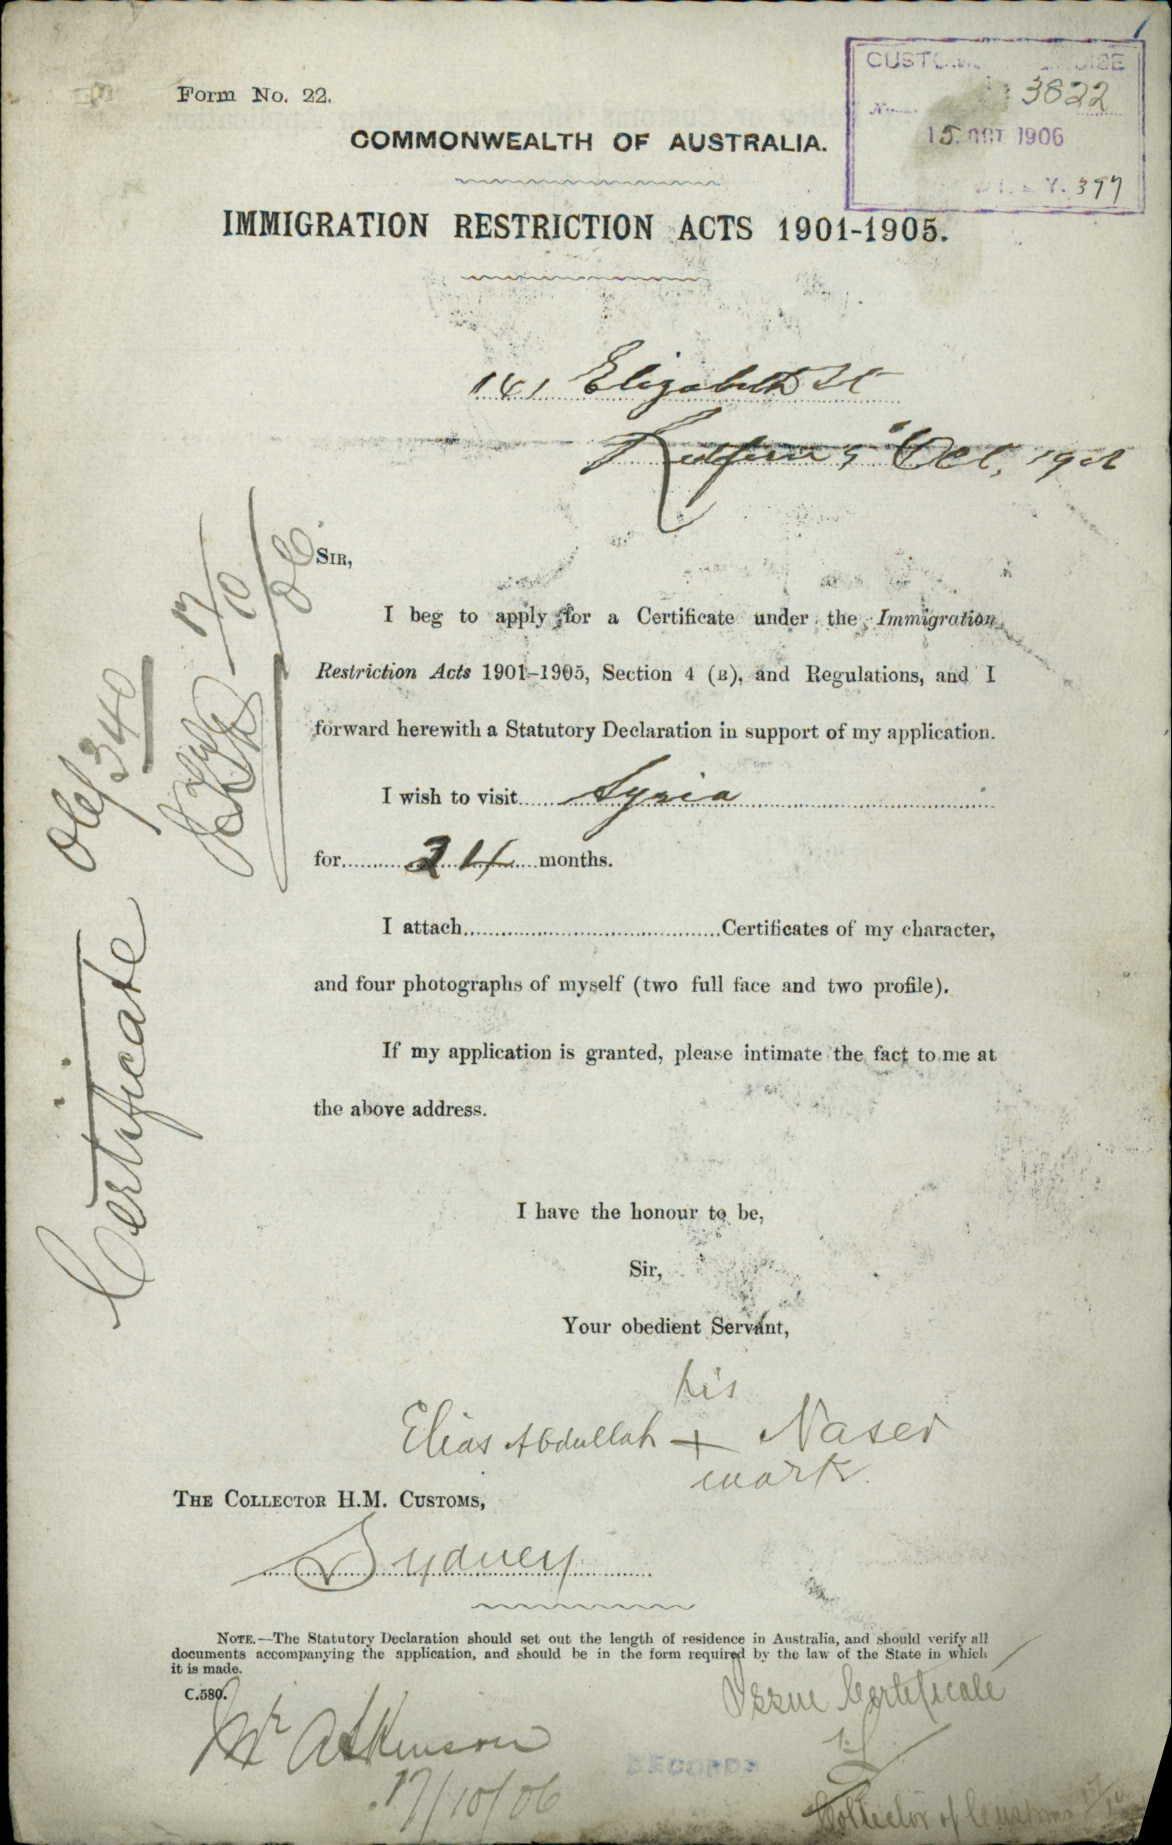 Form No. 22.
COMMONWEALTH OF AUSTRALIA.
IMMIGRATION RESTRICTION ACTS 1901-1905.
3822
15 OCT 1906
397
141 Elizabeth St
Redfern 9" Oct, 1906
SIR,
I beg to apply for a Certificate under the Immigration
Restriction Acts 1901-1905, Section 4 (B), and Regulations, and I
forward herewith a Statutory Declaration in support of my application.
I wish to visit Syria
for 24 months.
I attach Certificates of my character,
and four photographs of myself (two full face and two profile).
If my application is granted, please intimate the fact to me at
the above address.
I have the honour to be,
Sir,
Your obedient Servant,
his
Elias Abdullah + Naser
mark
THE COLLECTOR H.M. CUSTOMS,
Sydney
NOTE.—The Statutory Declaration should set out the length of residence in Australia, and should verify all
documents accompanying the application, and should be in the form required by the law of the State in which
it is made.
C.580.
Mr Atkinson
17/10/06
Issue Certificate
Collector of Customs
RECORDS
Certificate
06/340
17/10/06